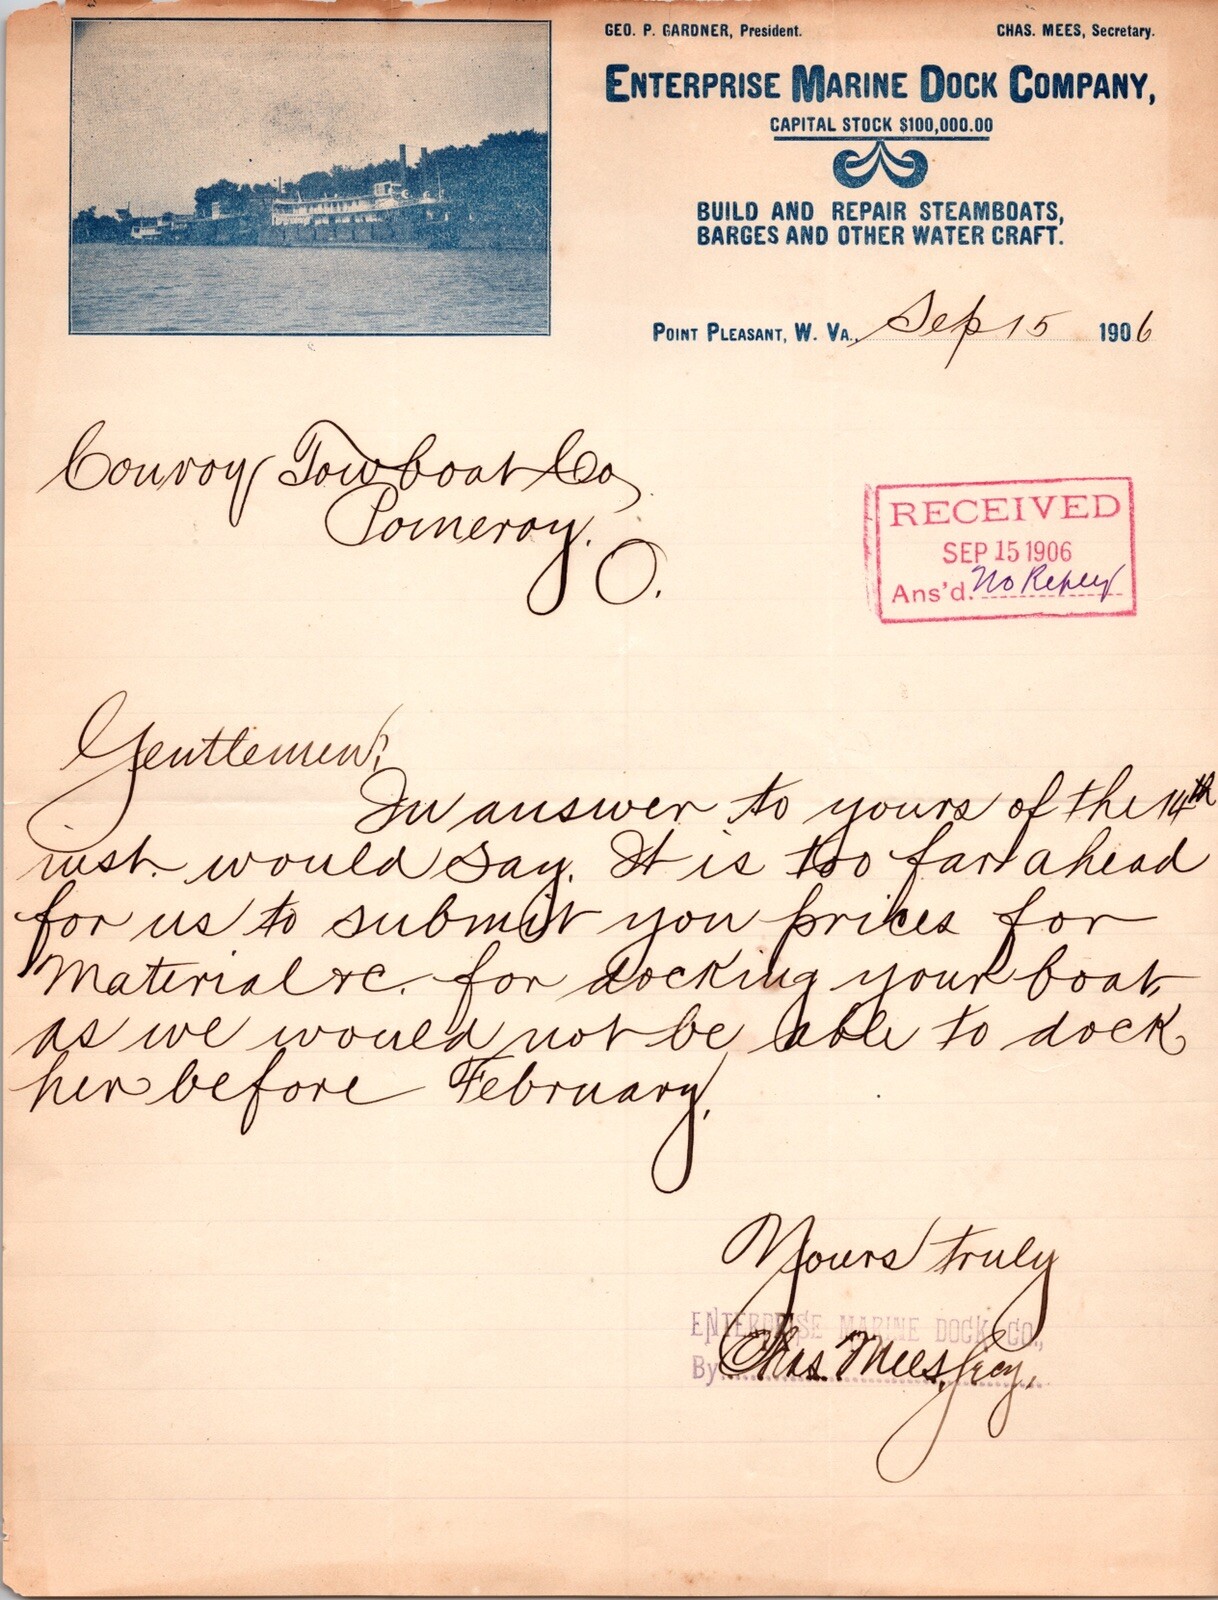 GEO. P. GARDNER, President.
CHAS. MEES, Secretary.
ENTERPRISE MARINE DOCK COMPANY,
CAPITAL STOCK $100,000.00
BUILD AND REPAIR STEAMBOATS,
BARGES AND OTHER WATER CRAFT.
POINT PLEASANT, W. VA., Sep 15 1906
Convoy Towboat Co
Pomeroy.
O.
RECEIVED
SEP 15 1906
Ans'd. No Reply
Gentlemen:
In answer to yours of the 14th
inst. would say. It is too far ahead
for us to submit you prices for
Material &c. for docking your boat,
as we would not be able to dock
her before February.
Yours truly
ENTERPRISE MARINE DOCK CO.,
By Chas. Mees, Secy.